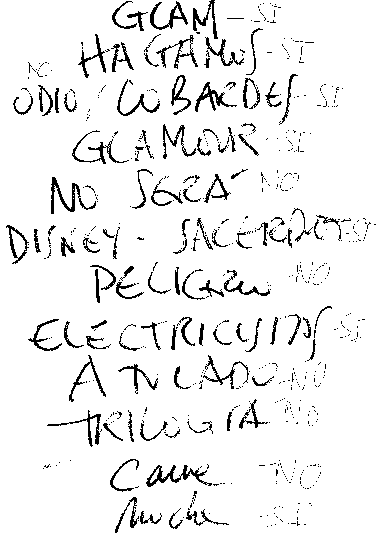 GLAM - SI
HAGAMOS - SI
NO
ODIO / COBARDES - SI
GLAMOUR - SI
NO SERÁ - NO
DISNEY - SACERDOTE - SI
PELIGRO - NO
ELECTRICISTAS - SI
A TU LADO - NO
TRILOGIA NO
Carne NO
Noche - SI